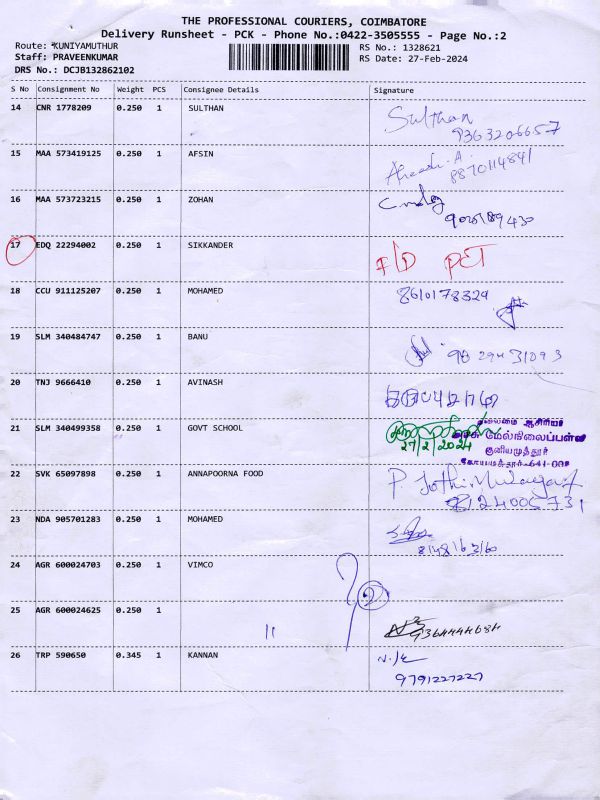 THE PROFESSIONAL COURIERS, COIMBATORE
Delivery Runsheet - PCK - Phone No.:0422-3505555 - Page No.:2
Route: KUNIYAMUTHUR RS No.: 1328621
Staff: PRAVEENKUMAR RS Date: 27-Feb-2024
DRS No.: DCJB132862102
S No Consignment No Weight PCS Consignee Details Signature
14 CNR 1778209 0.250 1 SULTHAN Sulthan
9363206657
15 MAA 573419125 0.250 1 AFSIN
8870114841
16 MAA 573723215 0.250 1 ZOHAN
17 EDQ 22294002 0.250 1 SIKKANDER
18 CCU 911125207 0.250 1 MOHAMED 8610178329
19 SLM 340484747 0.250 1 BANU
20 TNJ 9666410 0.250 1 AVINASH
21 SLM 340499358 0.250 1 GOVT SCHOOL
தலைமை ஆசிரியர்
அரசு மேல்நிலைப்பள்ளி
27/2/2024 குனியமுத்தூர்
கோயமுத்தூர்-641-008
22 SVK 65097898 0.250 1 ANNAPOORNA FOOD
8124005731
23 NDA 905701283 0.250 1 MOHAMED
24 AGR 600024703 0.250 1 VIMCO
25 AGR 600024625 0.250 1 11
9364444684
26 TRP 590650 0.345 1 KANNAN
9791227227